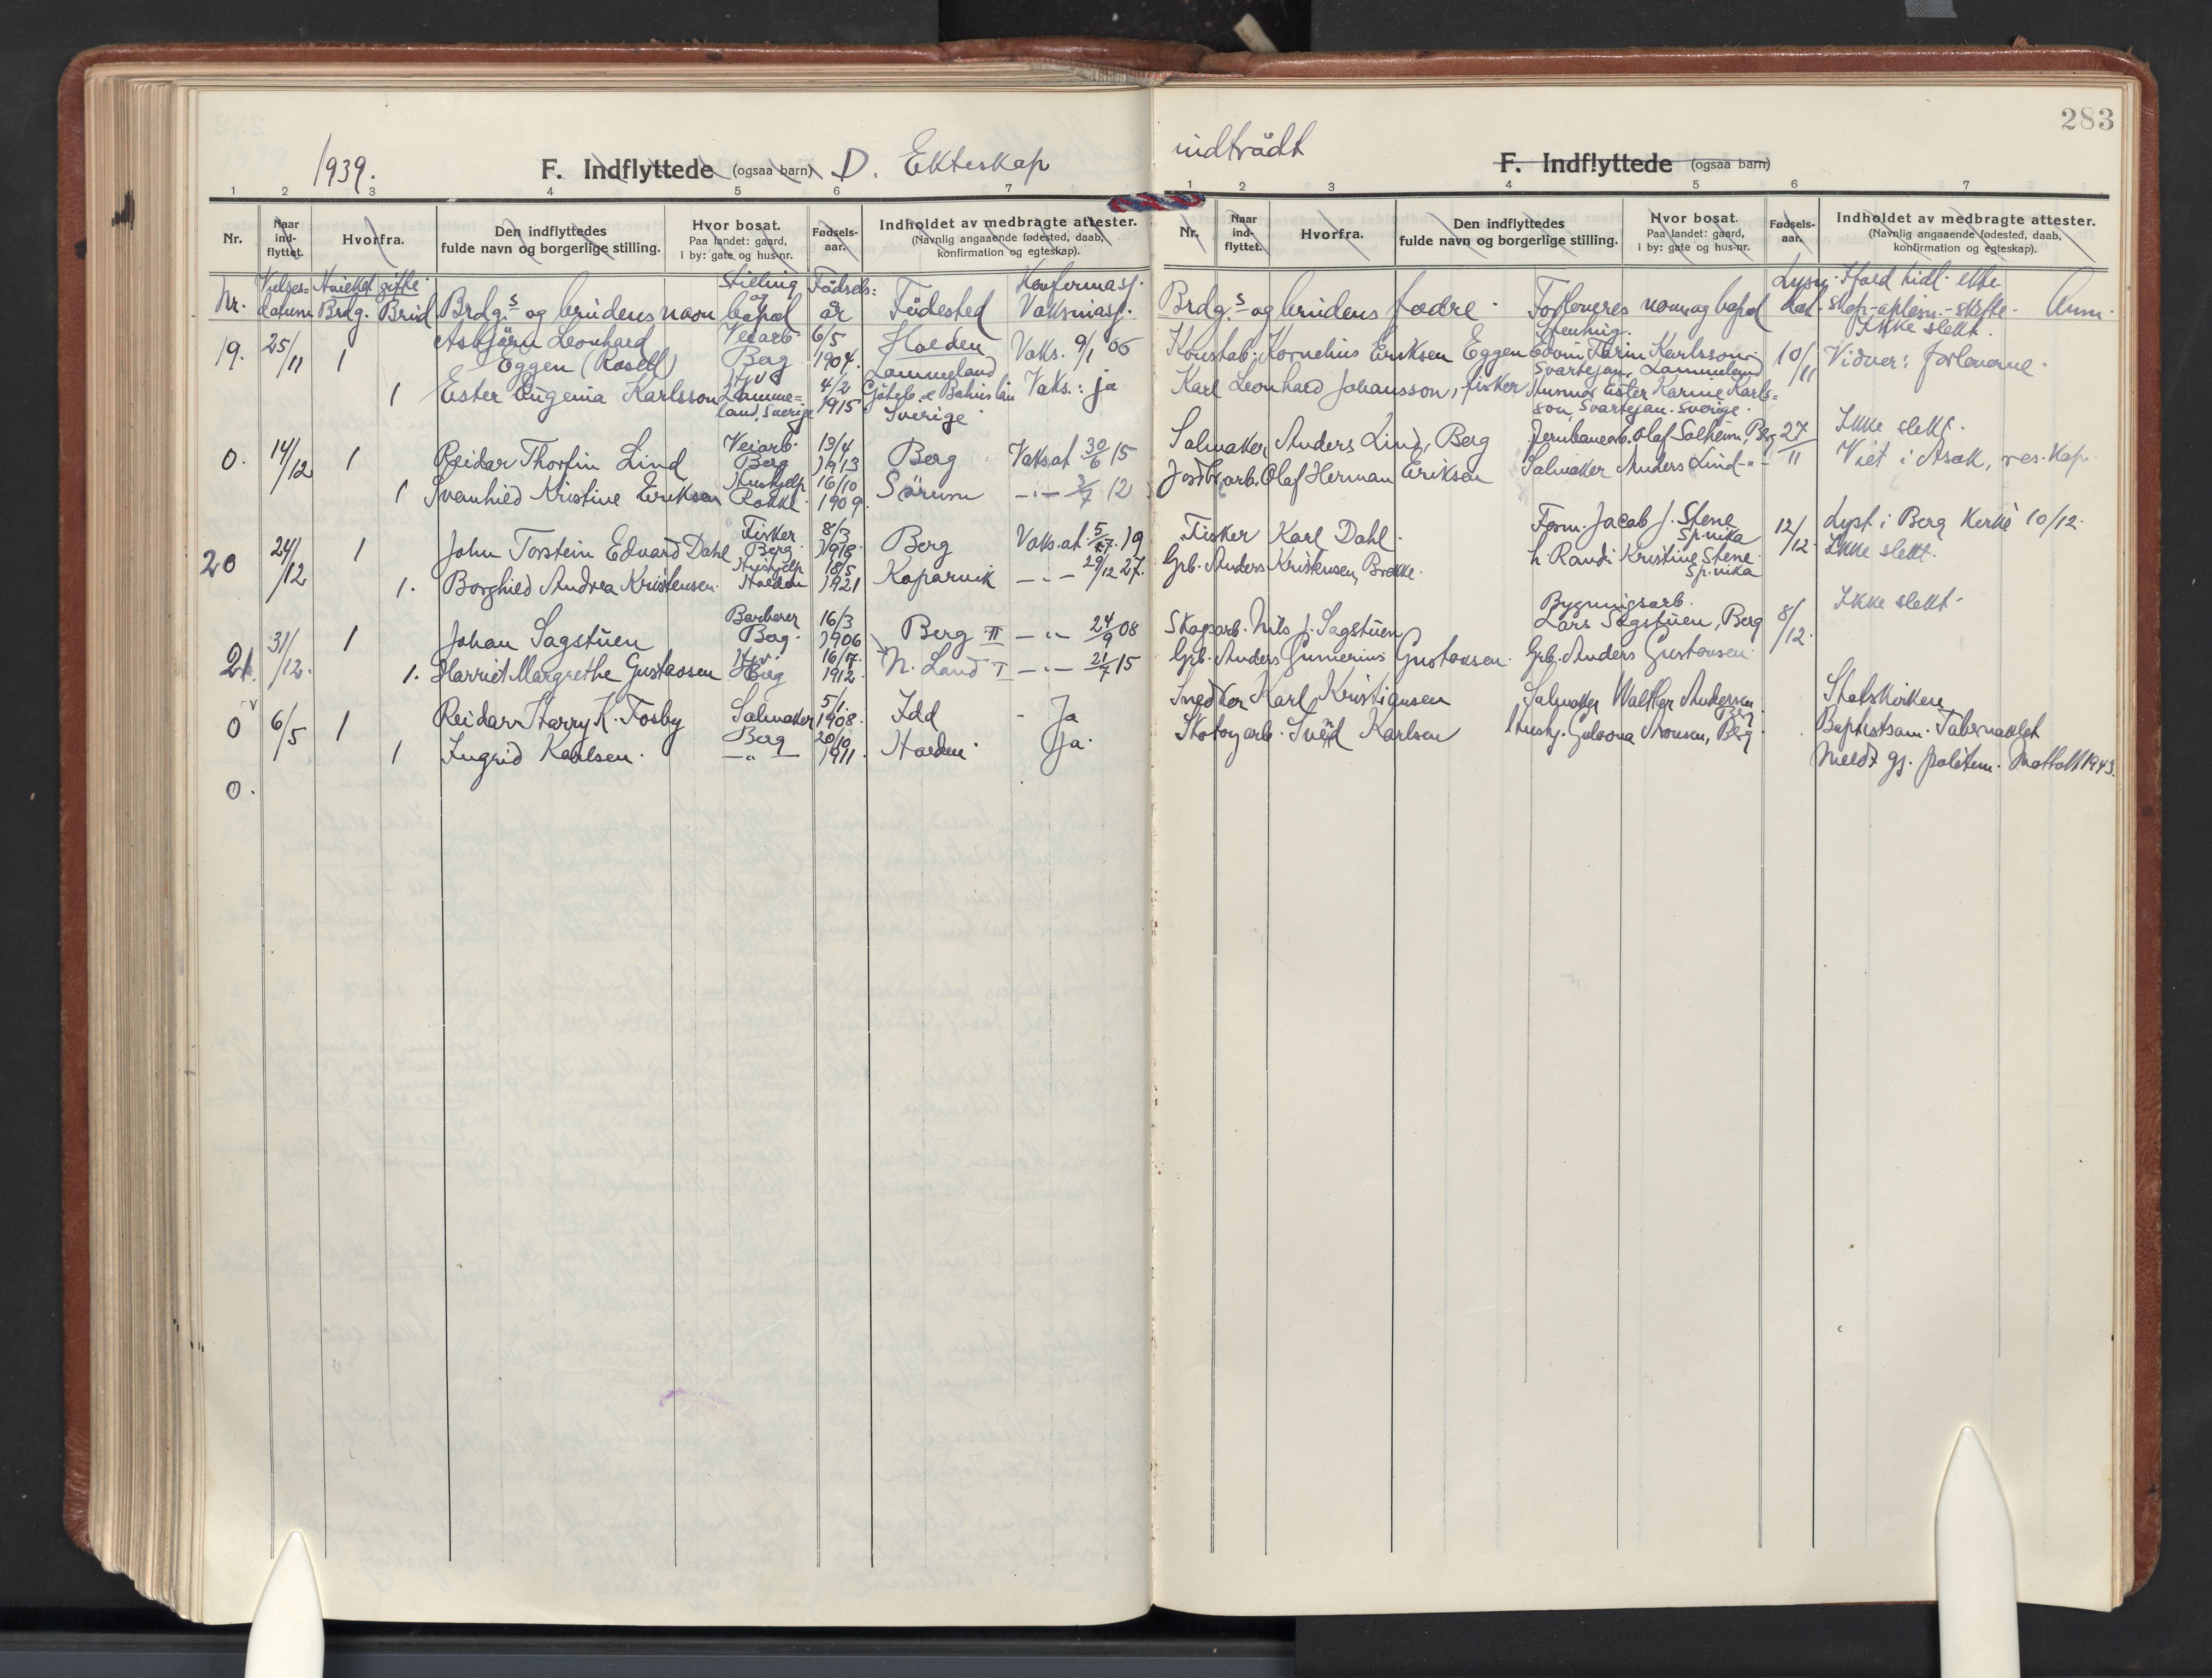 283
1939.
F. Indflyttede (ogsaa barn) D. Ekteskap
indtrådt
F. Indflyttede (ogsaa barn)
1 2 3 4 5 6 7
1 2 3 4 5 6 7
Nr. Naar ind-flyttet. Hvorfra. Den indflyttedes fulde navn og borgerlige stilling. Hvor bosat. Paa landet: gaard, i by: gate og hus-nr. Fødsels-aar. Indholdet av medbragte attester. (Navnlig angaaende fødested, daab, konfirmation og egteskap).
Nr. Naar ind-flyttet. Hvorfra. Den indflyttedes fulde navn og borgerlige stilling. Hvor bosat. Paa landet: gaard, i by: gate og hus-nr. Fødsels-aar. Indholdet av medbragte attester. (Navnlig angaaende fødested, daab, konfirmation og egteskap).
Nr. Vielses=datum Brdg. Brud Brdg.s og brudens navn Stilling og bopæl Fødsels=år Fødested Konfirmasj. Vaksinasj.
Brdg.s og brudens fædre. Forloveres navn og bopæl Lysn. dat. Anm.
19. 25/11 1 Asbjørn Leonhard Eggen (Rosell) Veiarb. Berg 6/5 1904. Halden Vaks. 9/1 06
Konstab. Kornelius Eriksen Eggen Edvin Karlsson Svartejan. Lammeland 10/11 Ikke slekt. Vidner: forloverne.
1 Ester Eugenia Karlsson Lamme=land, Sverige 4/2 1915 Lammeland Göteb. & Bohuslän Sverige Vaks.: ja
Karl Leonhard Johansson, fisker Ester Karine Karls=son, Svartejan. Sverige.
0. 14/12 1 Reidar Thorfin Lind Veiarb. Berg 13/4 1913 Berg Vaks.at. 30/6 15
Salmaker Anders Lind, Berg Jernbanearb. Olaf Solheim, Berg 27/11 Ikke slekt.
1 Svanhild Kristine Eriksen Hushjelp Rokke. 16/10 1909. Sørum -"- 3/7 12
Jordbr.arb. Olaf Herman Eriksen Salmaker Anders Lind -"- Viet i Asak, res. kap.
20 24/12 1 John Torstein Edvard Dahl Fisker Berg. 8/3 1918. Berg Vaks.at. 19
Fisker Karl Dahl. Jacob J. Stene Sp.vika 12/12. Lyst i Berg kirke 10/12. Ikke slekt.
1. Borghild Andrea Kristensen. Hushjelp Halden 18/5 1921 Kaparvik -"- 29/12 27.
Grb. Anders Kristensen, Brekke. Randi Kristine Stene. Sp.vika
21. 31/12. 1 Johan Sagstuen Barberer Berg. 16/3 1906 Berg II -"- 24/9 08
Skogarb. Nils J. Sagstuen Bygningsarb. Lars Sagstuen, Berg 8/12. Ikke slekt.
1. Harriet Margrethe Gustavsen 1912 N. Land I -"- 21/7 15
Grb. Anders Gunerius Gustavsen. Grb. Anders Gustavsen.
0 6/5 1 Reidar Harry K. Fosby Salmaker Berg 5/1. 1908. Idd - Ja
Snedker Karl Kristiansen Salmaker Walther Andersen Berg Statskirken
1 Ingrid Karlsen. -"- 20/10 1911. Halden. Ja.
Skotøyarb. Karlsen Berg Baptistsam. Tabernaklet
0.
Meldt gj. politim. Mottatt 1943.